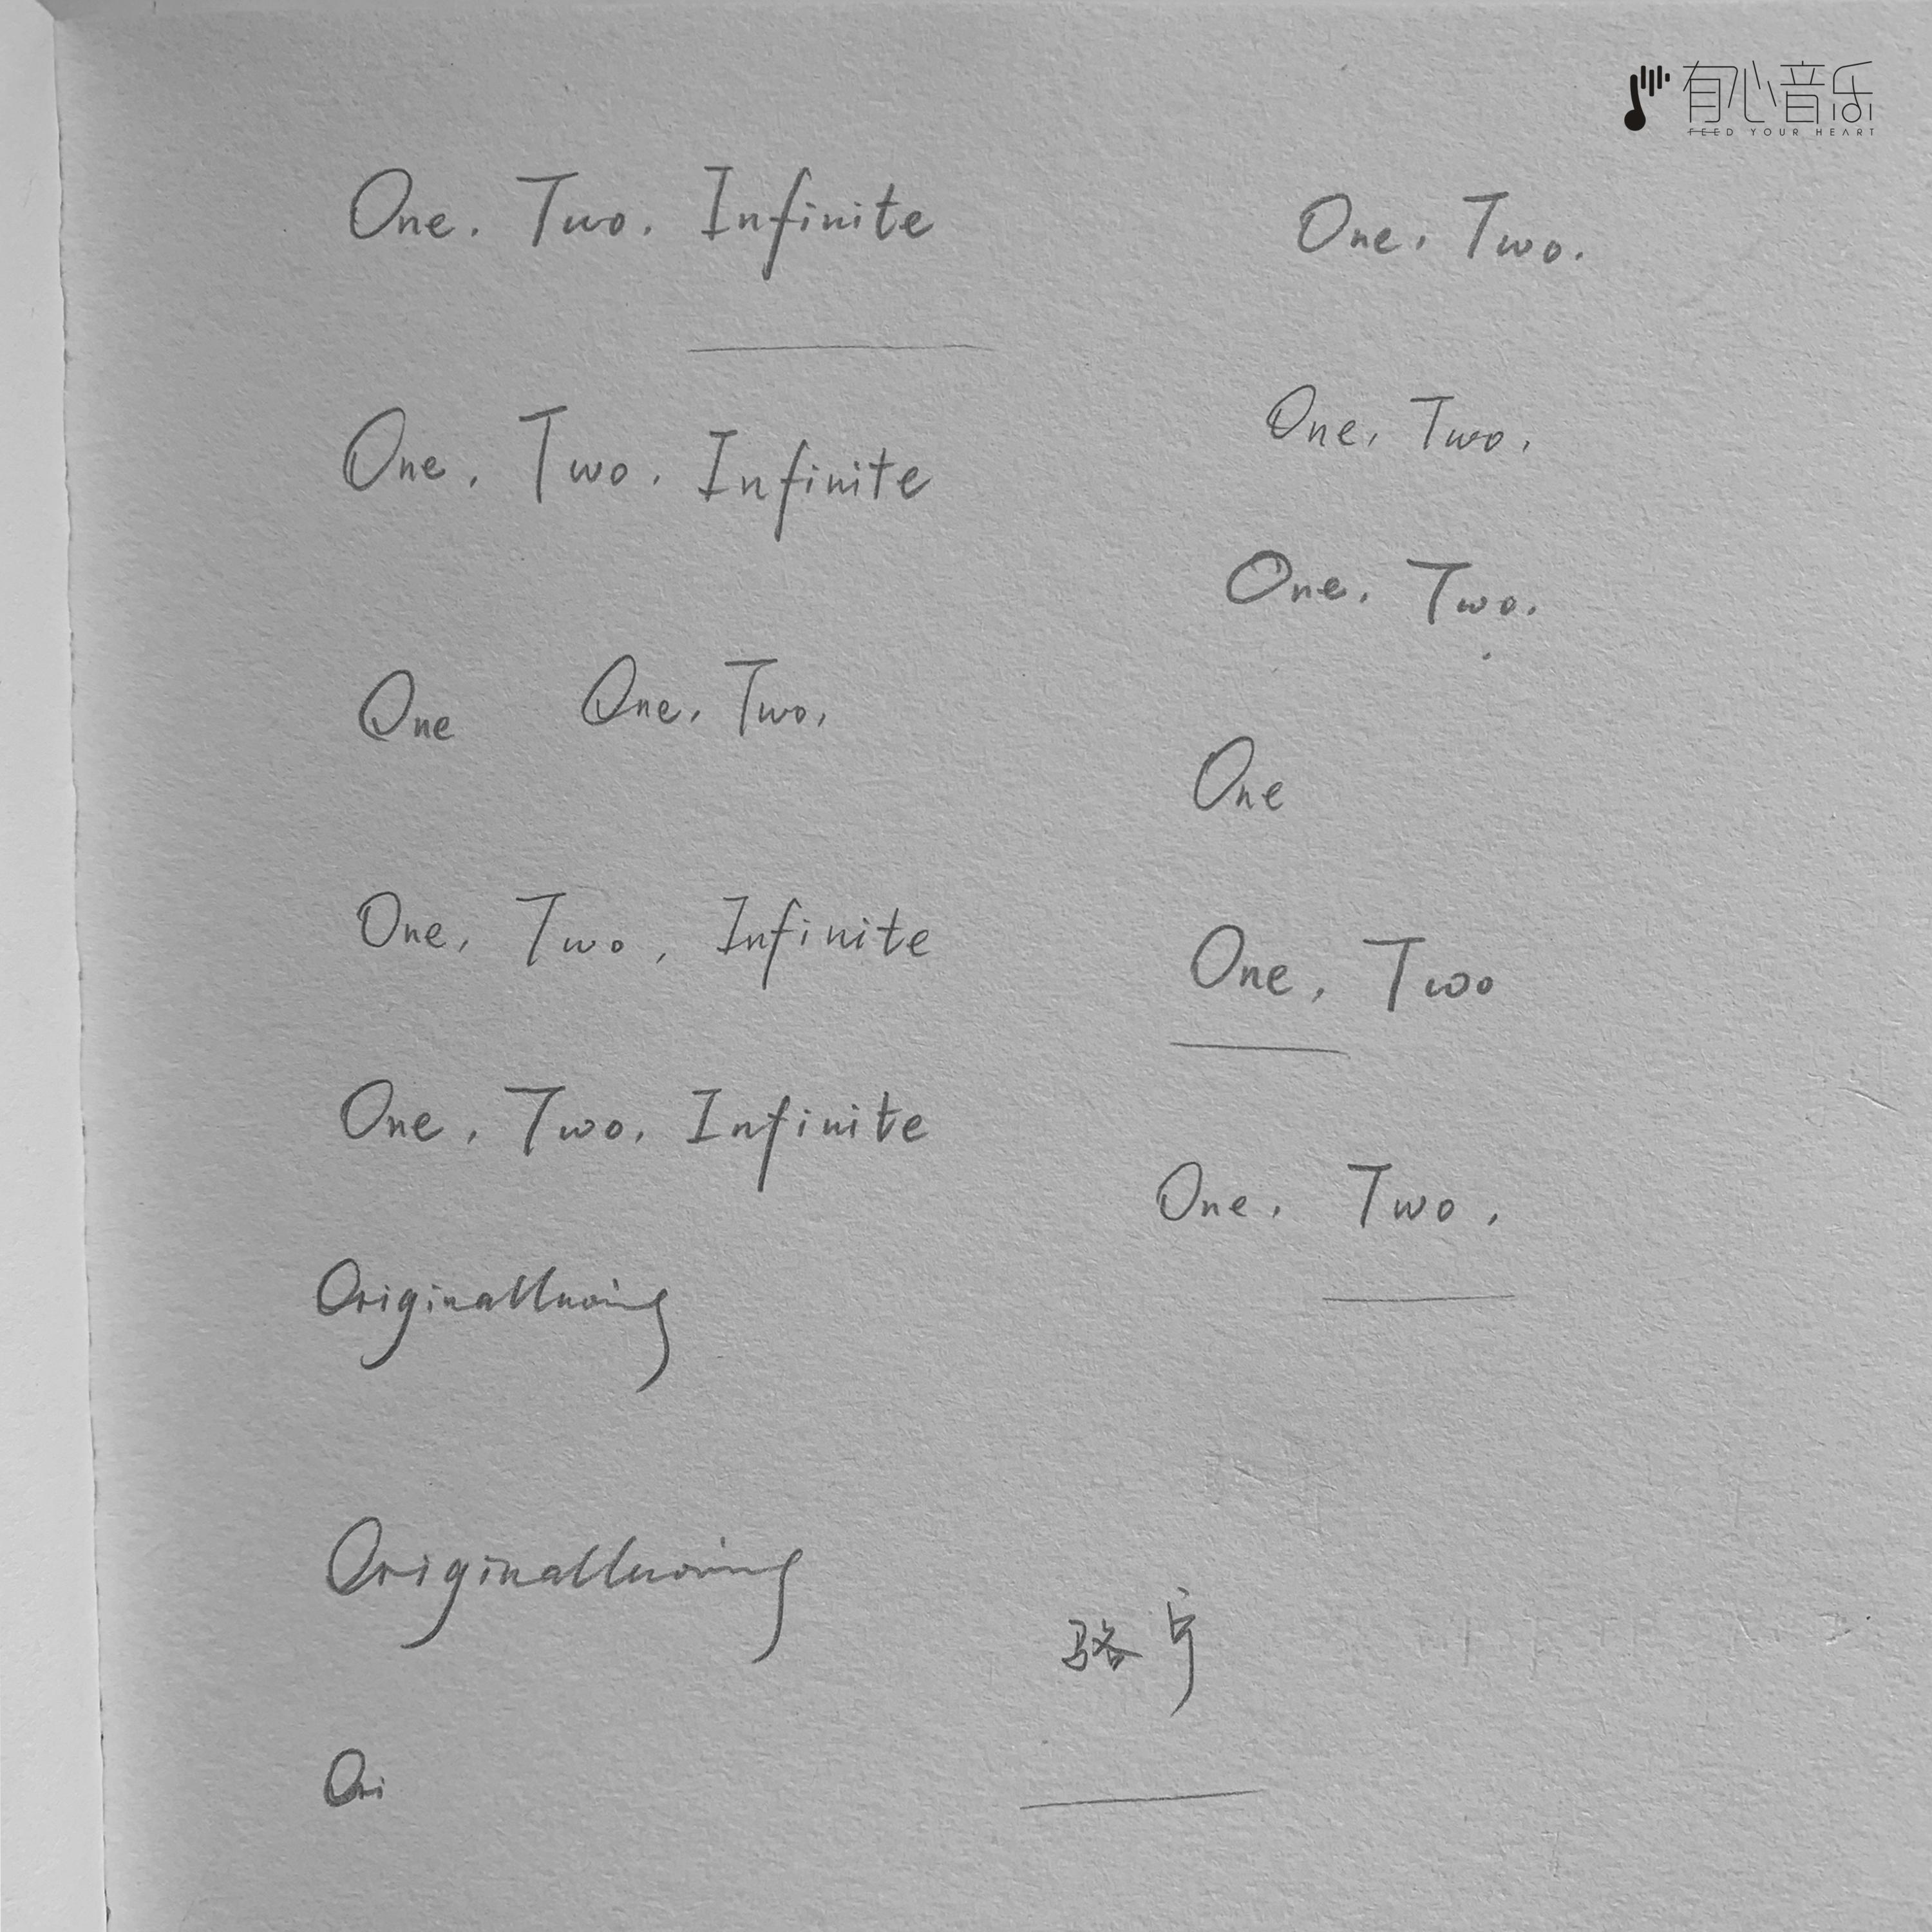 有心音乐
FEED YOUR HEART
One, Two, Infinite
One, Two, Infinite
One
One, Two,
One, Two, Infinite
One, Two, Infinite
Originalluoning
Originalluoning
Ori
One, Two.
One, Two,
One, Two.
One
One, Two
One, Two,
骆宁